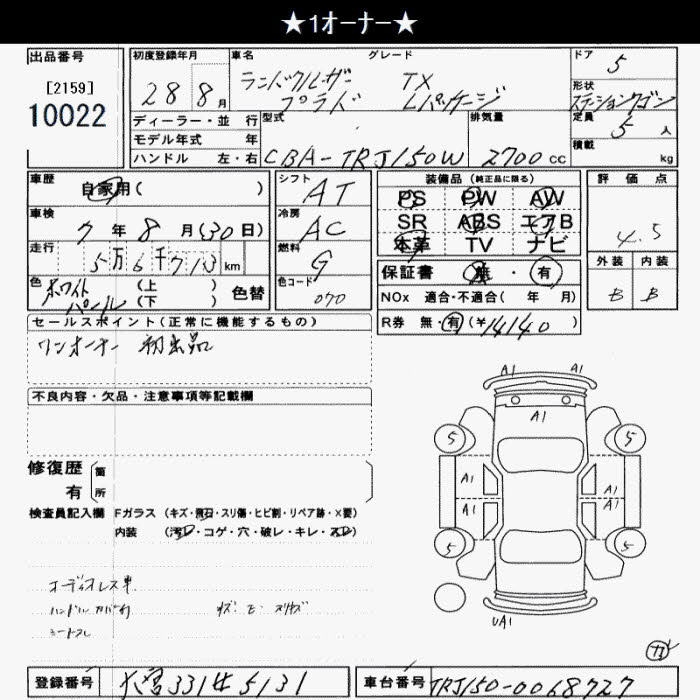 ★1オーナー★
出品番号
[2159]
10022
初度登録年月 28 8月
車名 ランドクルーザープラド
グレード TX Lパッケージ
ドア 5
形状 ステーションワゴン
定員 5人
積載 kg
ディーラー・並行
モデル年式 年
ハンドル 左・右
型式 CBA-TRJ150W
排気量 2700cc
車歴 自家用( )
車検 7年8月(30日)
走行 5万6千713km
色 ホワイトパール (上 ) (下 ) 色替
シフト AT
冷房 AC
燃料 G
色コード 070
装備品(純正品に限る)
PS PW AW
SR ABS エアB
本革 TV ナビ
保証書 無・有
NOx 適合・不適合( 年 月)
R券 無・有(¥14140)
評価点
4.5
外装 内装
B B
セールスポイント(正常に機能するもの)
ワンオーナー 初出品
不良内容・欠品・注意事項等記載欄
修復歴
有
箇所
検査員記入欄 Fガラス (キズ・飛石・スリ傷・ヒビ割・リペア跡・×要)
内装 (汚レ・コゲ・穴・破レ・キレ・スレ)
オーディオレス車
ハンドルカバー付
シートスレ
A1 A1
A1
5 5
A1 A1
A1
5 5
UA1
登録番号 大宮331せ5131
車台番号 TRJ150-0068727